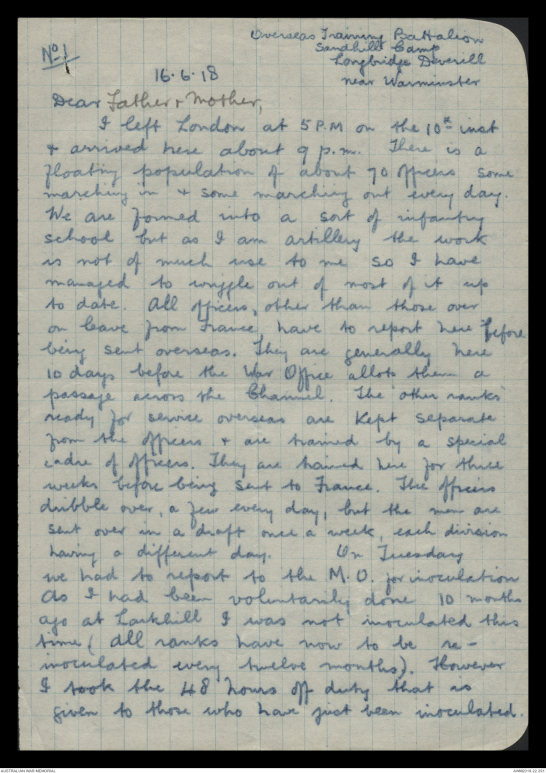 Nº 1
Overseas Training Battalion
Sandhill Camp
Longbridge Deverill
near Warminster
16.6.18
Dear Father & Mother,
I left London at 5 P.M on the 10th inst
& arrived here about 9 p.m. There is a
floating population of about 70 officers some
marching in & some marching out every day.
We are formed into a sort of infantry
school but as I am artillery the work
is not of much use to me so I have
managed to wriggle out of most of it up
to date. All officers, other than those over
on leave from France, have to report here before
being sent overseas. They are generally here
10 days before the War Office allots them a
passage across the Channel. The other ranks
ready for service overseas are kept separate
from the officers & are trained by a special
cadre of officers. They are trained here for three
weeks before being sent to France. The officers
dribble over, a few every day, but the men are
sent over in a draft once a week, each division
having a different day. On Tuesday
we had to report to the M.O. for inoculation
As I had been voluntarily done 10 months
ago at Larkhill I was not inoculated this
time (all ranks have now to be re-
inoculated every twelve months). However
I took the 48 hours off duty that is
given to those who have just been inoculated.
AUSTRALIAN WAR MEMORIAL